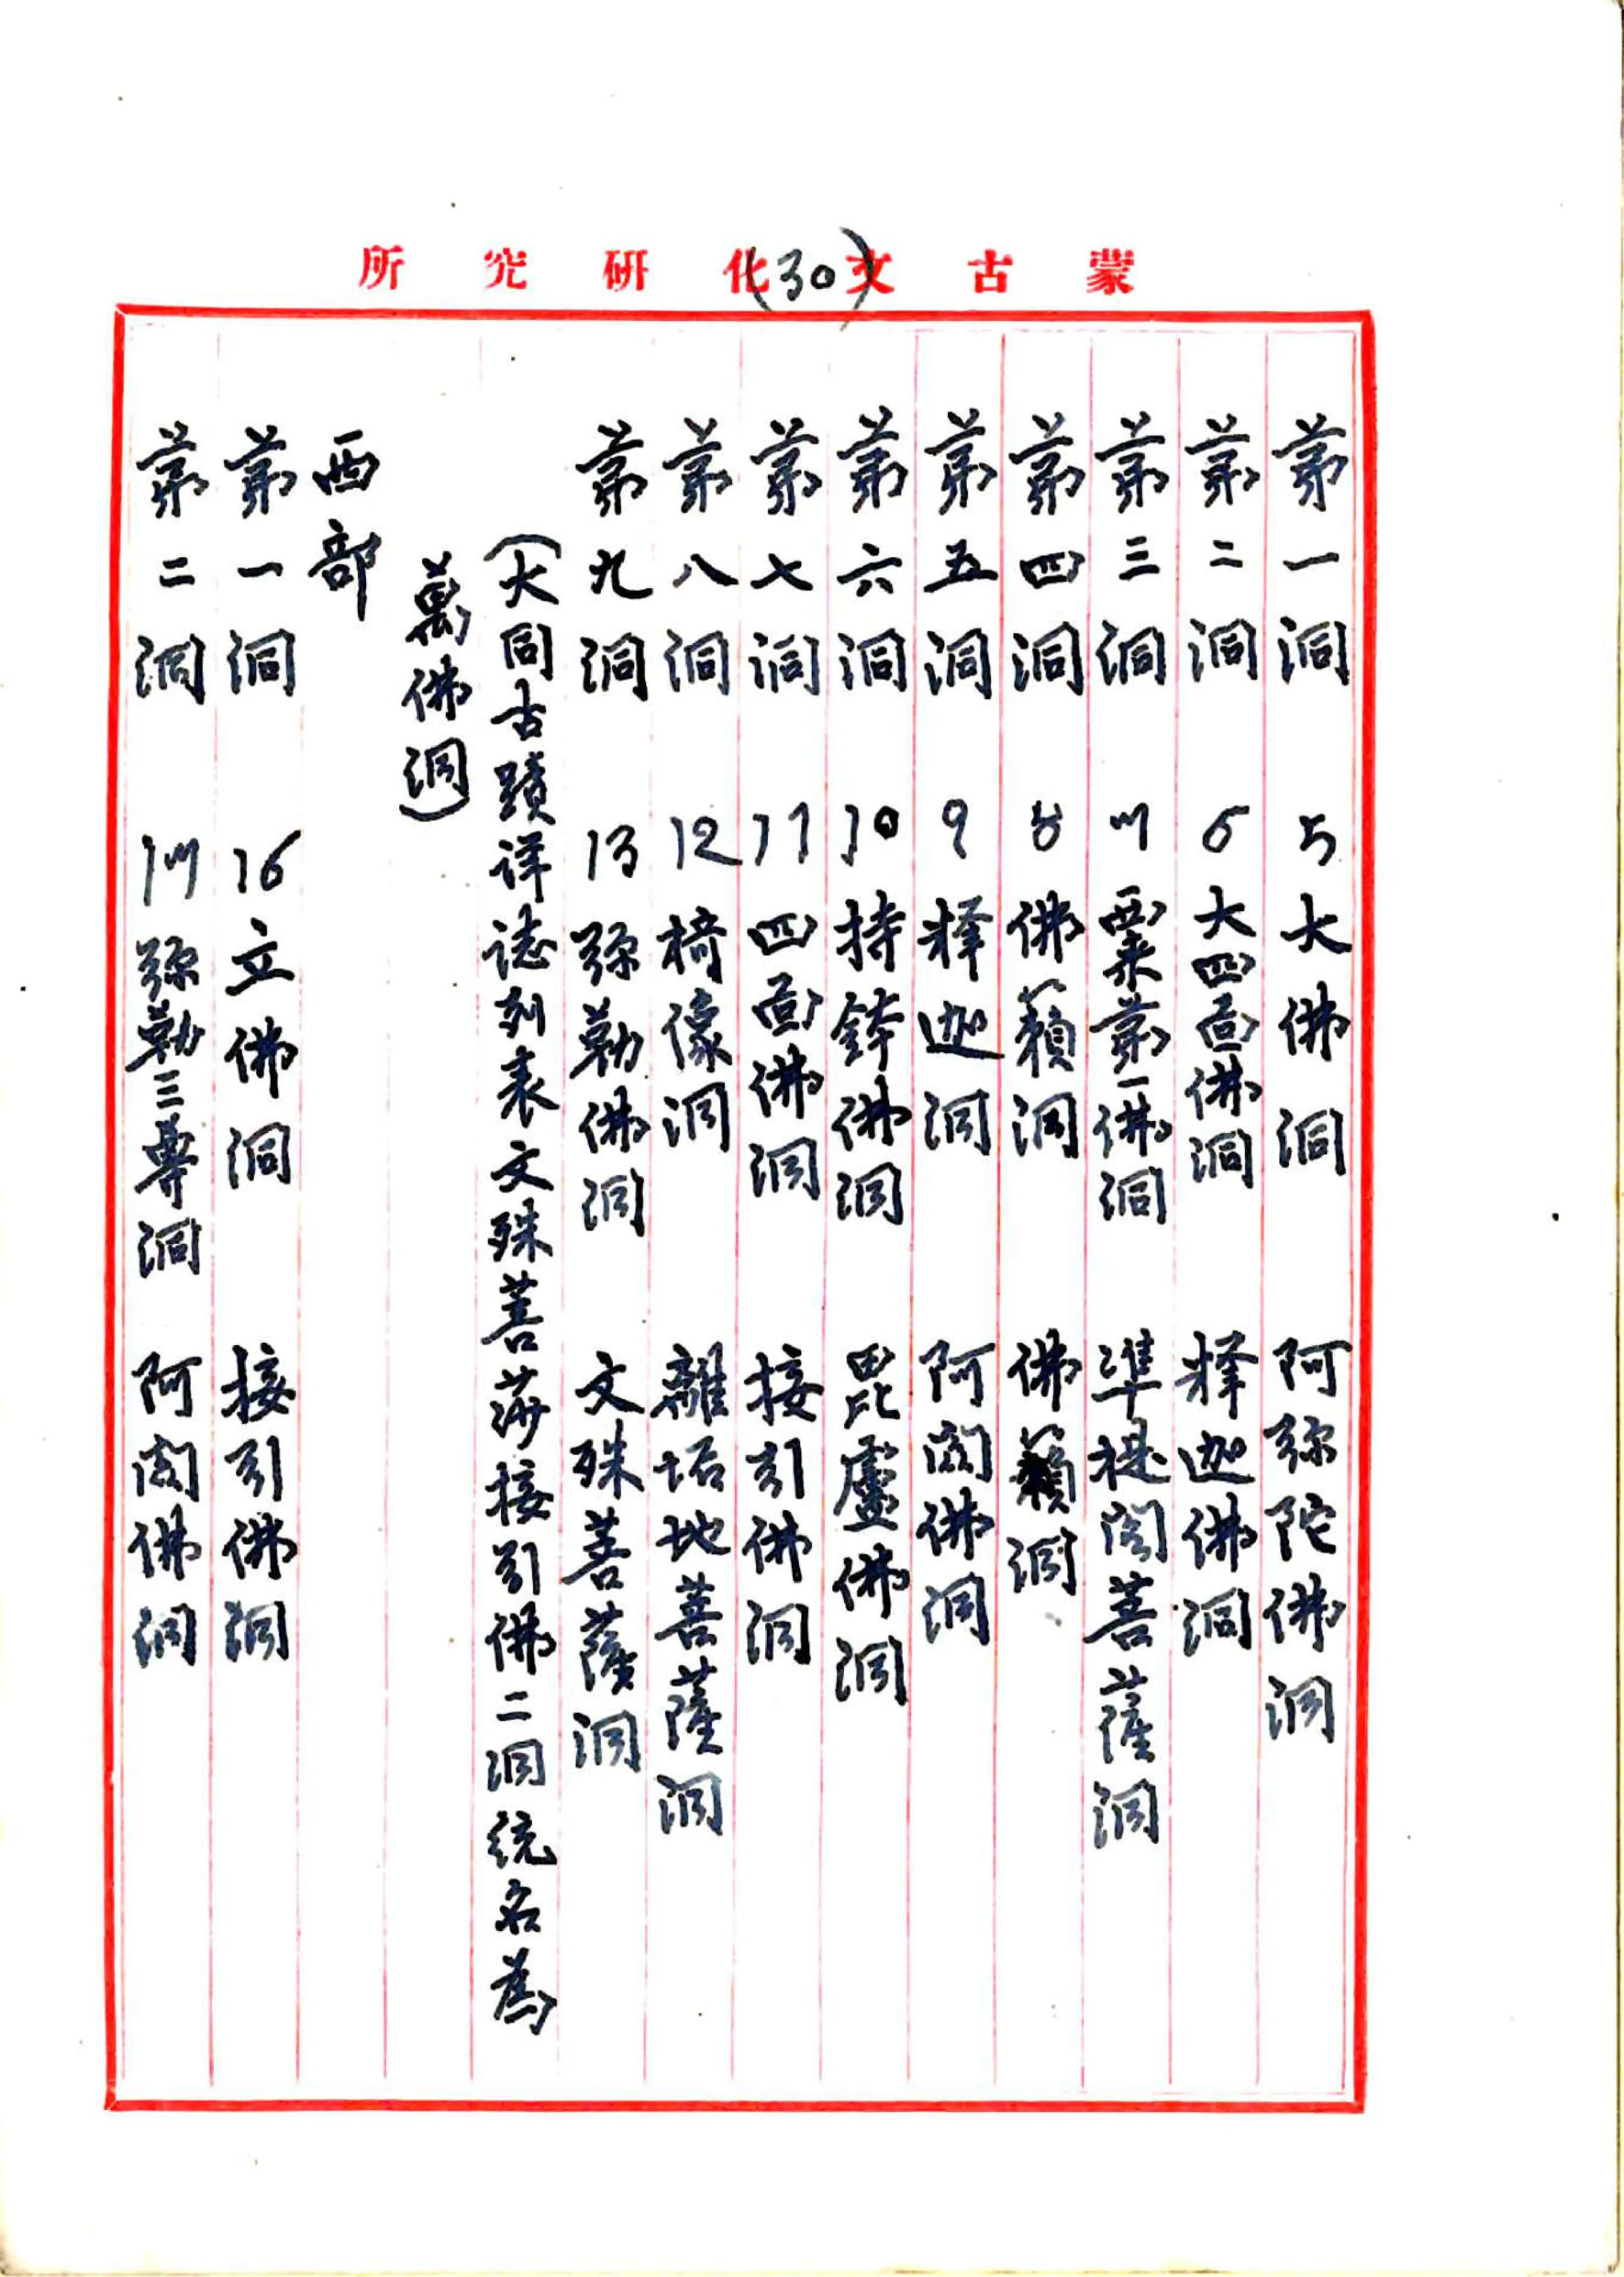 蒙古文化研究所
(30)
第一洞 5大佛洞 阿弥陀佛洞
第二洞 6大四面佛洞 释迦佛洞
第三洞 7西来第一佛洞 準提阁菩薩洞
第四洞 8佛籟洞 佛籟洞
第五洞 9释迦洞 阿閦佛洞
第六洞 10持鉢佛洞 毘盧佛洞
第七洞 11四面佛洞 接引佛洞
第八洞 12椅像洞 離垢地菩薩洞
第九洞 13弥勒佛洞 文殊菩薩洞
(大同古蹟详誌列表文殊菩莎接引佛二洞统名為
萬佛洞)
西部
第一洞 16立佛洞 接引佛洞
第二洞 17弥勒三尊洞 阿閦佛洞